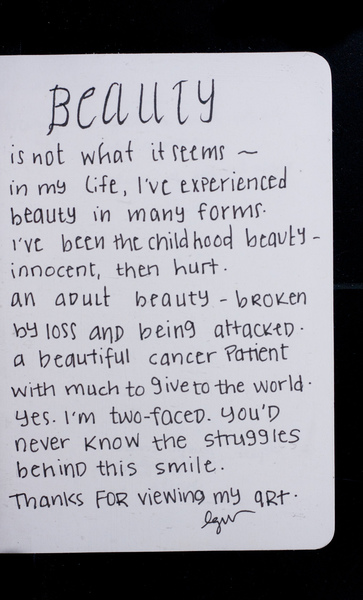 BEAUTY
is not what it seems ~
in my life, I've experienced
beauty in many forms.
I've been the childhood beauty -
innocent, then hurt.
an adult beauty - broken
by loss and being attacked.
a beautiful cancer Patient
with much to give to the world.
yes. I'm two-faced. you'd
never know the struggles
behind this smile.
Thanks for viewing my art.
lgw